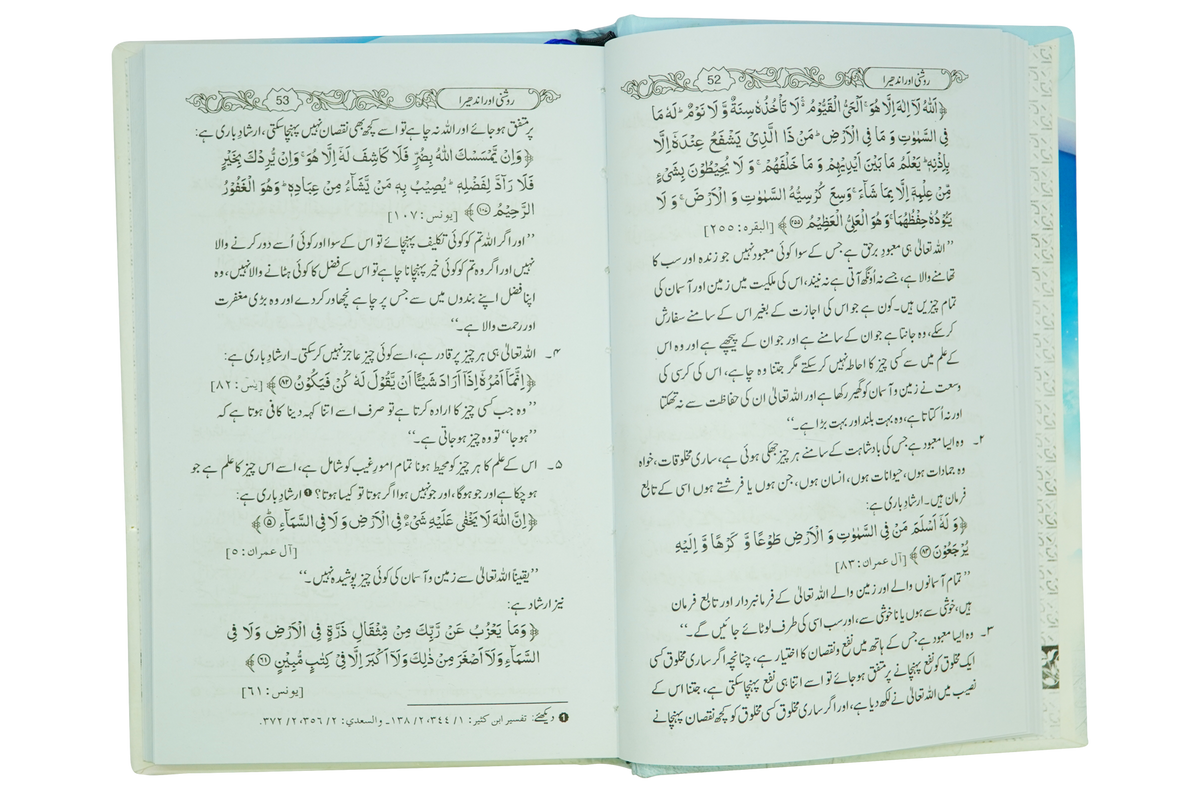 روشنی اور اندھیرا
52
﴿اَللّٰهُ لَاۤ اِلٰهَ اِلَّا هُوَ ۚ اَلْحَیُّ الْقَیُّوْمُ ۚ۬ لَا تَاْخُذُهٗ سِنَةٌ وَّ لَا نَوْمٌ ؕ لَهٗ مَا
فِی السَّمٰوٰتِ وَ مَا فِی الْاَرْضِ ؕ مَنْ ذَا الَّذِیْ یَشْفَعُ عِنْدَهٗۤ اِلَّا
بِاِذْنِهٖ ؕ یَعْلَمُ مَا بَیْنَ اَیْدِیْهِمْ وَ مَا خَلْفَهُمْ ۚ وَ لَا یُحِیْطُوْنَ بِشَیْءٍ
مِّنْ عِلْمِهٖۤ اِلَّا بِمَا شَآءَ ۚ وَسِعَ كُرْسِیُّهُ السَّمٰوٰتِ وَ الْاَرْضَ ۚ وَ لَا
یَـُٔوْدُهٗ حِفْظُهُمَا ۚ وَ هُوَ الْعَلِیُّ الْعَظِیْمُ ﴿۲۵۵﴾﴾ [البقرہ: ۲۵۵]
”اللہ تعالیٰ ہی معبودِ برحق ہے جس کے سوا کوئی معبود نہیں جو زندہ اور سب کا
تھامنے والا ہے، جسے نہ اُونگھ آتی ہے نہ نیند، اس کی ملکیت میں زمین اور آسمان کی
تمام چیزیں ہیں۔ کون ہے جو اس کی اجازت کے بغیر اس کے سامنے سفارش
کرسکے، وہ جانتا ہے جو ان کے سامنے ہے اور جو ان کے پیچھے ہے اور وہ اس
کے علم میں سے کسی چیز کا احاطہ نہیں کرسکتے مگر جتنا وہ چاہے، اس کی کرسی کی
وسعت نے زمین و آسمان کو گھیر رکھا ہے اور اللہ تعالیٰ ان کی حفاظت سے نہ تھکتا
اور نہ اُکتاتا ہے، وہ بہت بلند اور بہت بڑا ہے۔“
۲۔ وہ ایسا معبود ہے جس کی بادشاہت کے سامنے ہر چیز جھکی ہوئی ہے، ساری مخلوقات، خواہ
وہ جمادات ہوں، حیوانات ہوں، انسان ہوں، جن ہوں یا فرشتے ہوں اسی کے تابع
فرمان ہیں۔ ارشادِ باری ہے:
﴿وَ لَهٗۤ اَسْلَمَ مَنْ فِی السَّمٰوٰتِ وَ الْاَرْضِ طَوْعًا وَّ كَرْهًا وَّ اِلَیْهِ
یُرْجَعُوْنَ ﴿۸۳﴾﴾ [آل عمران: ۸۳]
”تمام آسمانوں والے اور زمین والے اللہ تعالیٰ کے فرمانبردار اور تابع فرمان
ہیں، خوشی سے ہوں یا نا خوشی سے، اور سب اسی کی طرف لوٹائے جائیں گے۔“
۳۔ وہ ایسا معبود ہے جس کے ہاتھ میں نفع و نقصان کا اختیار ہے، چنانچہ اگر ساری مخلوق کسی
ایک مخلوق کو نفع پہنچانے پر متفق ہو جائے تو اسے اتنا ہی نفع پہنچا سکتی ہے، جتنا اس کے
نصیب میں اللہ تعالیٰ نے لکھ دیا ہے، اور اگر ساری مخلوق کسی مخلوق کو کچھ نقصان پہنچانے
روشنی اور اندھیرا
53
پر متفق ہو جائے اور اللہ نہ چاہے تو اسے کچھ بھی نقصان نہیں پہنچا سکتی، ارشادِ باری ہے:
﴿وَ اِنْ یَّمْسَسْكَ اللّٰهُ بِضُرٍّ فَلَا كَاشِفَ لَهٗۤ اِلَّا هُوَ ۚ وَ اِنْ یُّرِدْكَ بِخَیْرٍ
فَلَا رَآدَّ لِفَضْلِهٖ ؕ یُصِیْبُ بِهٖ مَنْ یَّشَآءُ مِنْ عِبَادِهٖ ؕ وَ هُوَ الْغَفُوْرُ
الرَّحِیْمُ ﴿۱۰۷﴾﴾ [یونس: ۱۰۷]
”اور اگر اللہ تم کو کوئی تکلیف پہنچائے تو اس کے سوا اور کوئی اُسے دور کرنے والا
نہیں اور اگر وہ تم کو کوئی خیر پہنچانا چاہے تو اس کے فضل کا کوئی ہٹانے والا نہیں، وہ
اپنا فضل اپنے بندوں میں سے جس پر چاہے نچھاور کردے اور وہ بڑی مغفرت
اور رحمت والا ہے۔“
۴۔ اللہ تعالیٰ ہی ہر چیز پر قادر ہے، اسے کوئی چیز عاجز نہیں کرسکتی۔ ارشادِ باری ہے:
﴿اِنَّمَاۤ اَمْرُهٗۤ اِذَاۤ اَرَادَ شَیْـًٔا اَنْ یَّقُوْلَ لَهٗ كُنْ فَیَكُوْنُ ﴿۸۲﴾﴾ [یٰسٓ: ۸۲]
”وہ جب کسی چیز کا ارادہ کرتا ہے تو صرف اسے اتنا کہہ دینا کافی ہوتا ہے کہ
”ہوجا“ تو وہ چیز ہوجاتی ہے۔“
۵۔ اس کے علم کا ہر چیز کو محیط ہونا تمام امورِ غیب کو شامل ہے، اسے اس چیز کا علم ہے جو
ہو چکا ہے اور جو ہوگا، اور جو نہیں ہوا اگر ہوتا تو کیسا ہوتا؟ ❶ ارشادِ باری ہے:
﴿اِنَّ اللّٰهَ لَا یَخْفٰی عَلَیْهِ شَیْءٌ فِی الْاَرْضِ وَ لَا فِی السَّمَآءِ ﴿۵﴾﴾
[آل عمران: ۵]
”یقیناً اللہ تعالیٰ سے زمین و آسمان کی کوئی چیز پوشیدہ نہیں۔“
نیز ارشاد ہے:
﴿وَ مَا یَعْزُبُ عَنْ رَّبِّكَ مِنْ مِّثْقَالِ ذَرَّةٍ فِی الْاَرْضِ وَ لَا فِی
السَّمَآءِ وَ لَاۤ اَصْغَرَ مِنْ ذٰلِكَ وَ لَاۤ اَكْبَرَ اِلَّا فِیْ كِتٰبٍ مُّبِیْنٍ ﴿۶۱﴾﴾
[یونس: ۶۱]
❶ دیکھئے: تفسیر ابن کثیر: ۱/ ۳۴۴، ۲/ ۱۳۸۔ والسعدي: ۲/ ۳۵۶، ۲/ ۳۷۲.